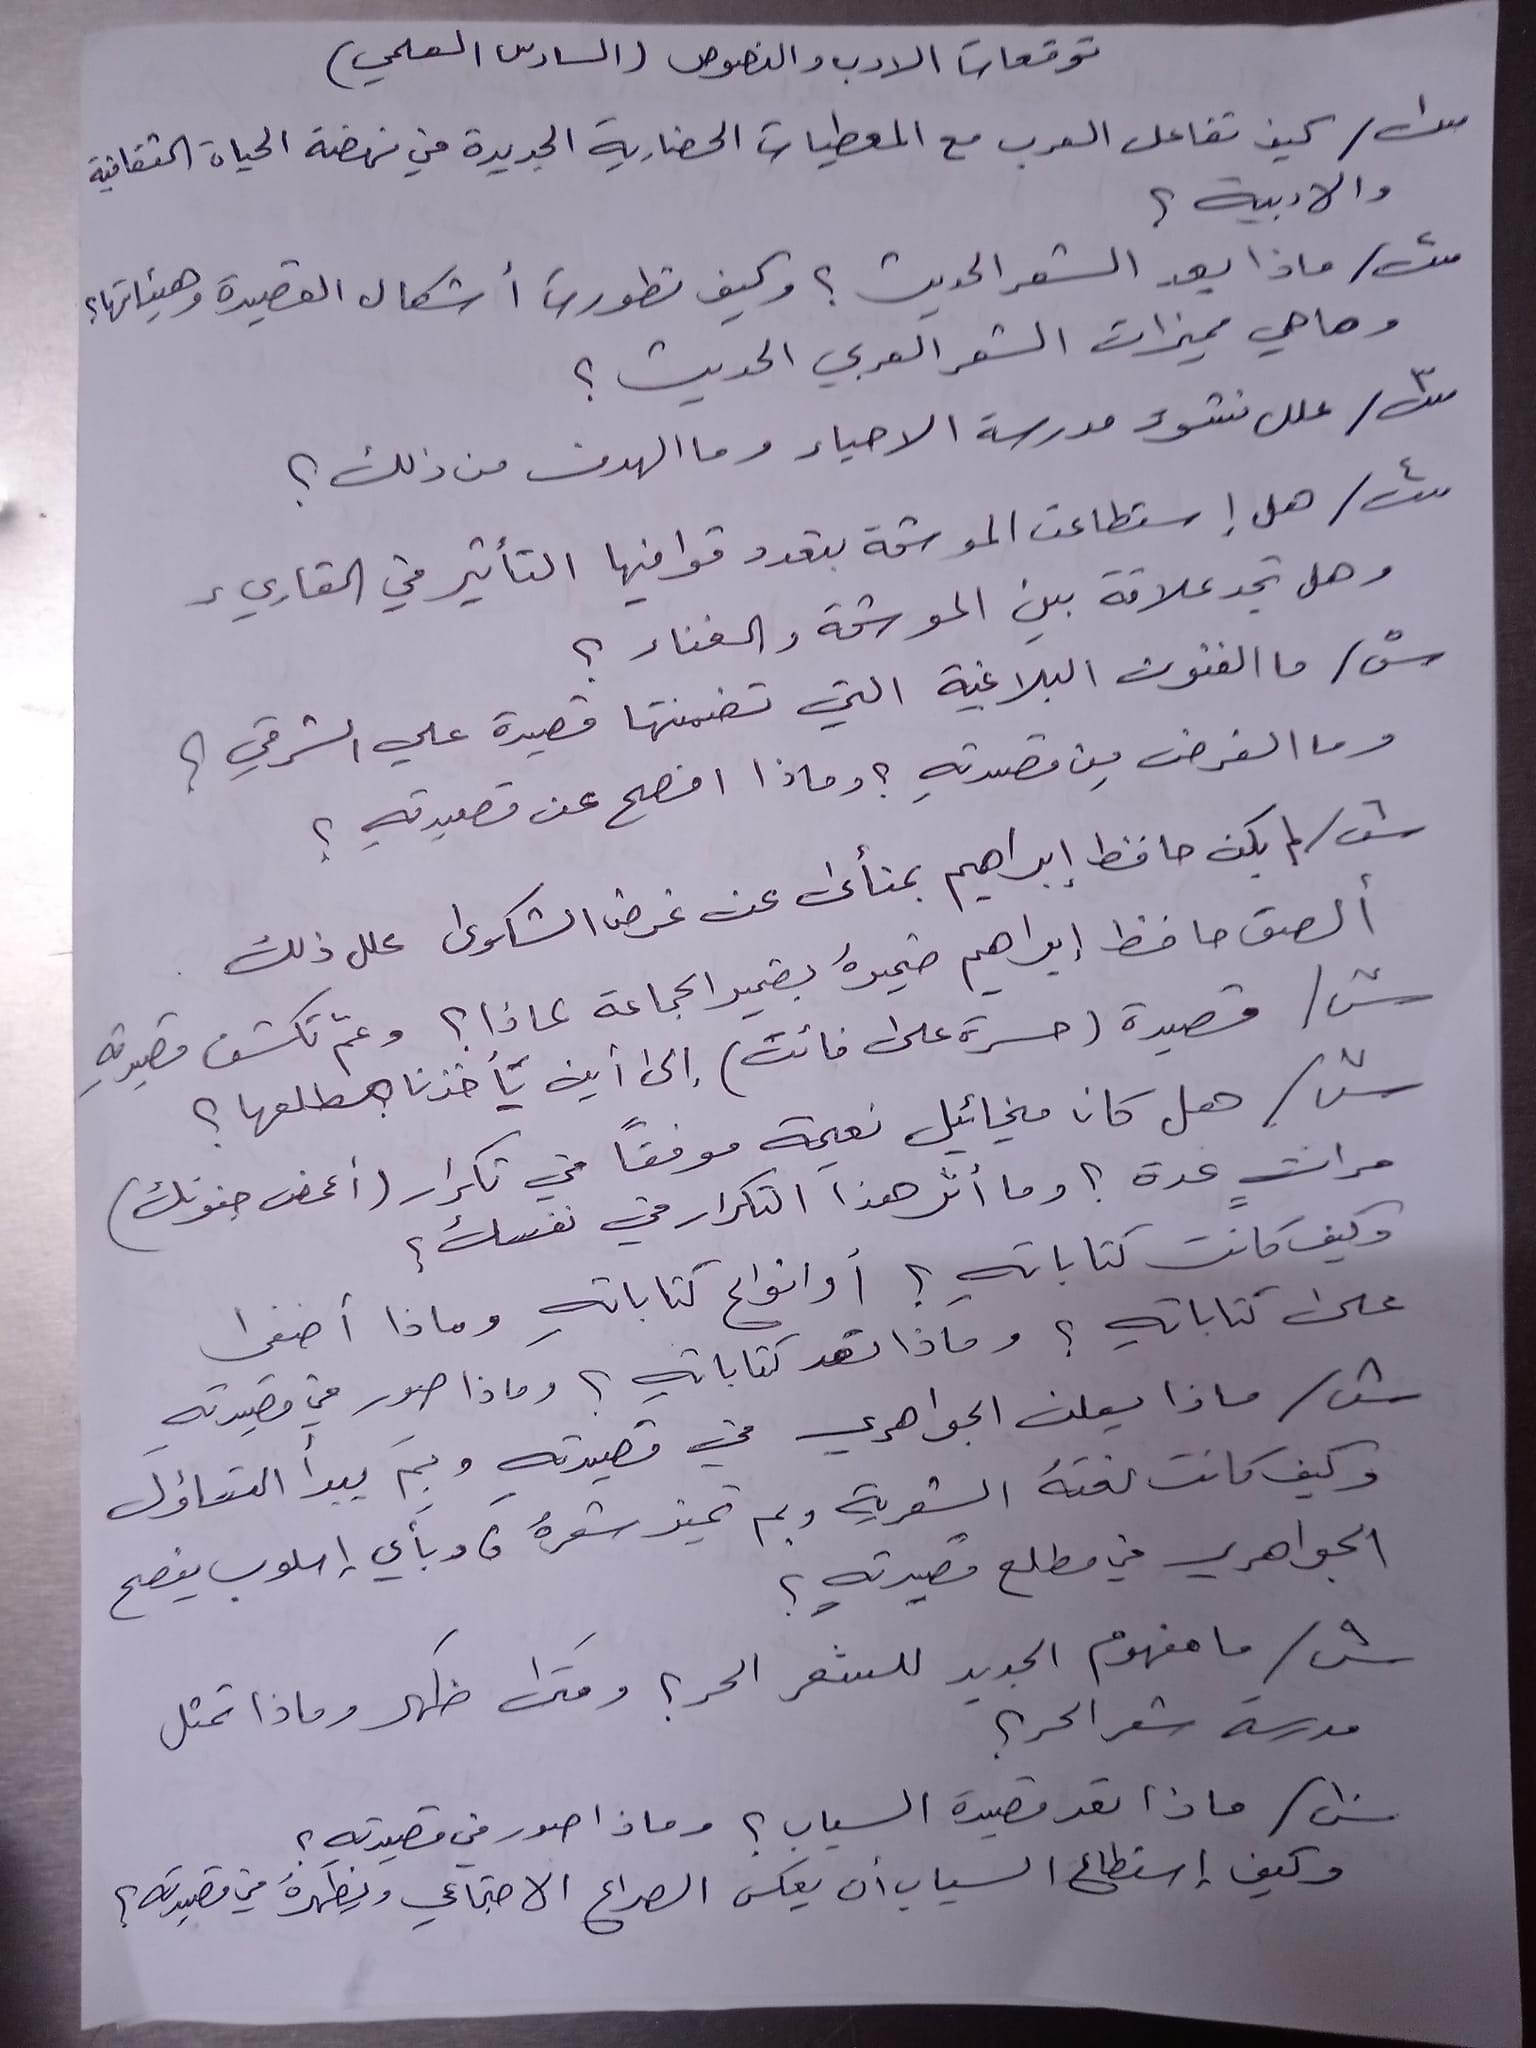 توقعات الادب والنصوص (السادس العلمي)
س١/ كيف تفاعل العرب مع المعطيات الحضارية الجديدة في نهضة الحياة الثقافية
والادبية ؟
س٢/ ماذا يعد الشعر الحديث ؟ وكيف تطورت أشكال القصيدة وهيئاتها؟
وماهي مميزات الشعر العربي الحديث ؟
س٣/ علل نشوء مدرسة الاحياء وما الهدف من ذلك ؟
س٤/ هل إستطاعت الموشحة بتعدد قوافيها التأثير في القاريء
وهل تجد علاقة بين الموشحة والغناء ؟
س٥/ ما الفنون البلاغية التي تضمنتها قصيدة علي الشرقي ؟
وما الغرض من قصيدتهِ ؟ وماذا افصح عن قصيدتهِ ؟
س٦/ لم يكن حافظ إبراهيم بمنأى عن غرض الشكوى علل ذلك
ألصق حافظ إبراهيم ضميرهُ بضمير الجماعة لماذا؟ وعمّ تكشف قصيدتهِ
س٧/ قصيدة (حسرة على فائت) إلى أين تأخذنا بمطلعها؟
س٧/ هل كان ميخائيل نعيمة موفقاً في تكرار (أغمض جفونك)
مراتٍ عدة ؟ وما أثر هذا التكرار في نفسك؟
وكيف كانت كتاباتهِ ؟ أو انواع كتاباتهِ وماذا أضفى
على كتاباتهِ ؟ وماذا تعد كتاباتهِ ؟ وماذا صور في قصيدتهِ
س٨/ ماذا يعلن الجواهري في قصيدتهِ وبمَ يبدأ التساؤل
وكيف كانت لغتهُ الشعرية وبم تميز شعرهُ وبأي إسلوب يفصح
الجواهري في مطلع قصيدتهِ ؟
س٩/ ما مفهوم الجديد للشعر الحر؟ ومتى ظهر وماذا تمثل
مدرسة شعر الحر؟
س١٠/ ماذا تعد قصيدة السياب ؟ وماذا صور في قصيدتهِ؟
وكيف إستطاع السياب أن يعكس الصراع الاجتماعي ويظهرهُ في قصيدتهِ؟